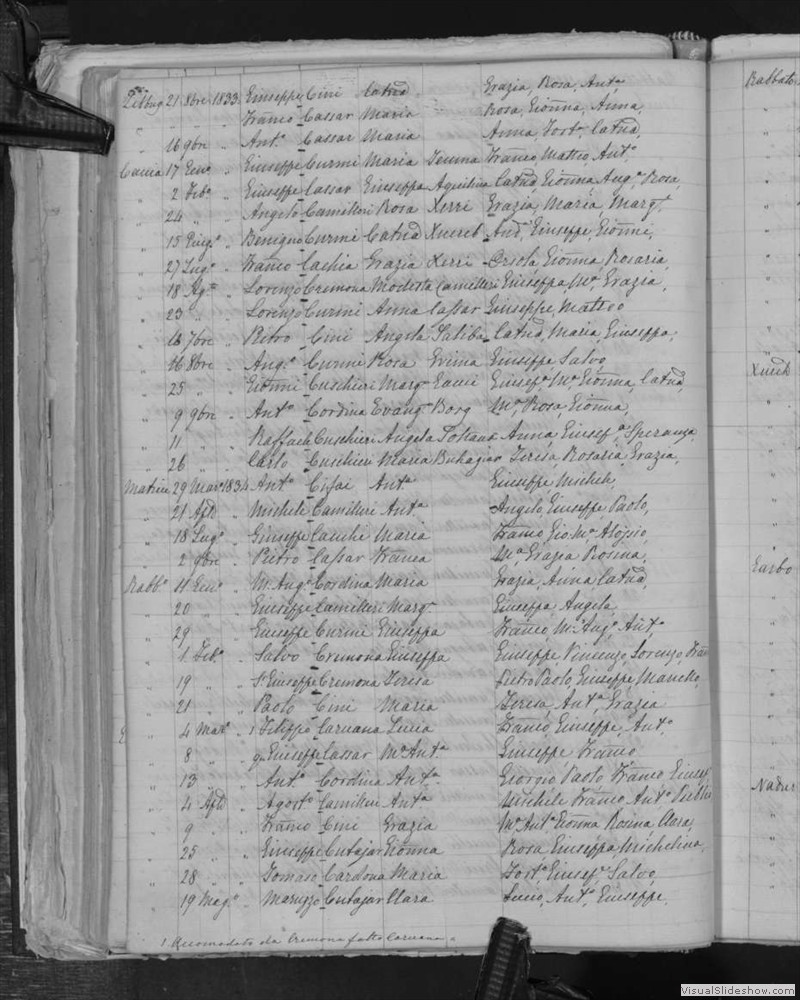 Zebbug 21 8bre 1833 Giuseppe Cini Catnā Grazia, Rosa, Antª
" " " Franco Cassar Maria Rosa, Gionna, Anna,
" 16 9bre " Antº Cassar Maria Anna, Fortª, Catnā,
Caccia 17 Genº " Giuseppe Curmi Maria Temma Franco Matteo, Antº,
" 2 Febº " Giuseppe Cassar Giuseppa Aquilina Catnā Gionna Angª Rosa,
" 24 " " Angelo Camilleri Rosa Xerri Grazia, Maria, Margª.
" 15 Giugº " Benigno Curmi Catnā Xuereb Andª Giuseppe, Gionni,
" 27 Lugº " Franco Cachia Grazia Xerri Orsola, Gionna, Rosaria,
" 18 Agº " Lorenzo Cremona Modesta Camilleri Giuseppa, Mª, Grazia,
" 23 " " Lorenzo Curmi Anna Cassar Giuseppe, Matteo
" 16 7bre " Pietro Cini Angela Saliba Catnā, Maria, Giuseppa,
" 16 8bre " Angº Curmi Rosa Grima Giuseppe Salvo,
" 25 " " Gionni Cuschieri Margª Gauci Giusepª Mª Gionna, Catnā,
" 9 9bre " Antº Cordina Evangª Borg Mª, Rosa Gionna,
" 11 " " Raffaele Cuschieri Angela Sultana Anna, Giusefª, Speranza
" 26 " " Carlo Cuschieri Maria Buhagiar Teresa, Rosaria, Grazia,
29 Marº 1834 Antº Cifai Antª Giuseppe Michele,
" 21 Aple " Michele Camilleri Antª Angelo, Giuseppe Paolo,
" 18 Lugº " Giuseppe Cauchi Maria Franco Gio.Mª Aloisio,
" 2 9bre " Pietro Cassar Franca Mª Grazia Rosina,
Rabbº 11 Genº " M. Angº Cordina Maria Grazia, Anna Catnā,
" 20 " " Giuseppe Camilleri Margª Giuseppa Angela,
" 29 " " Giuseppe Curmi Giuseppa Franco, M. Angº, Antº,
" 1 Febº " Salvo Cremona Giuseppa Giuseppe, Vincenzo, Lorenzo, Fran
" 19 " " Sr Giuseppe Cremona Teresa Pietro Paolo, Giuseppe
" 21 " " Paolo Cini Maria Teresa, Antª, Grazia
" 4 Marº " 1 Filippo Caruana Lucia Franco, Giuseppe, Antº,
" 8 " " qm Giuseppe Cassar Mª Antª Giuseppe, Franco
" 13 " " Antº Cordina Antª Giorgio, Paolo, Franco Giusep
" 4 Aple " Agostº Camilleri Antª Michele Franco, Antº Publio
" 9 " " Franco Cini Grazia Mª Antª Gionna, Rosina, Clara,
" 25 " " Giuseppe Cutajar Gionna Rosa, Giuseppa, Michelina,
" 28 " " Tomaso Cardona Maria Fortº Giusefª Salvo
" 19 Magº " Maruzzo Cutajar Clara Lucio, Antº, Giuseppe,
1 Accomodato da Cremona fatto Caruana
Rabbato
Xuereb
Garbo
Nadur
VisualSlideshow.com